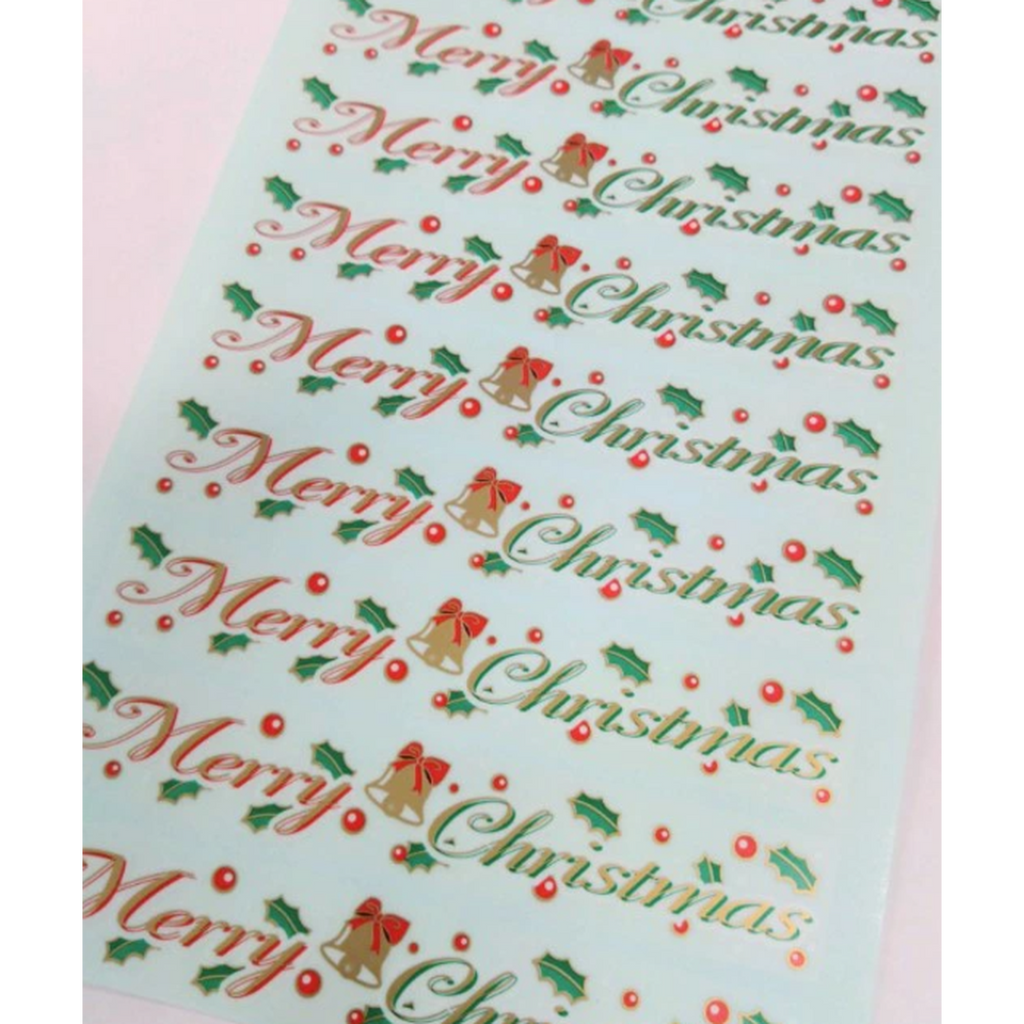 Christmas
Merry Christmas
Merry Christmas
Merry Christmas
Merry Christmas
Merry Christmas
Merry Christmas
Merry Christmas
Merry